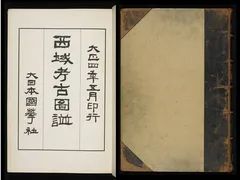 大正四年五月印行
西域考古圖譜
大日本國華社